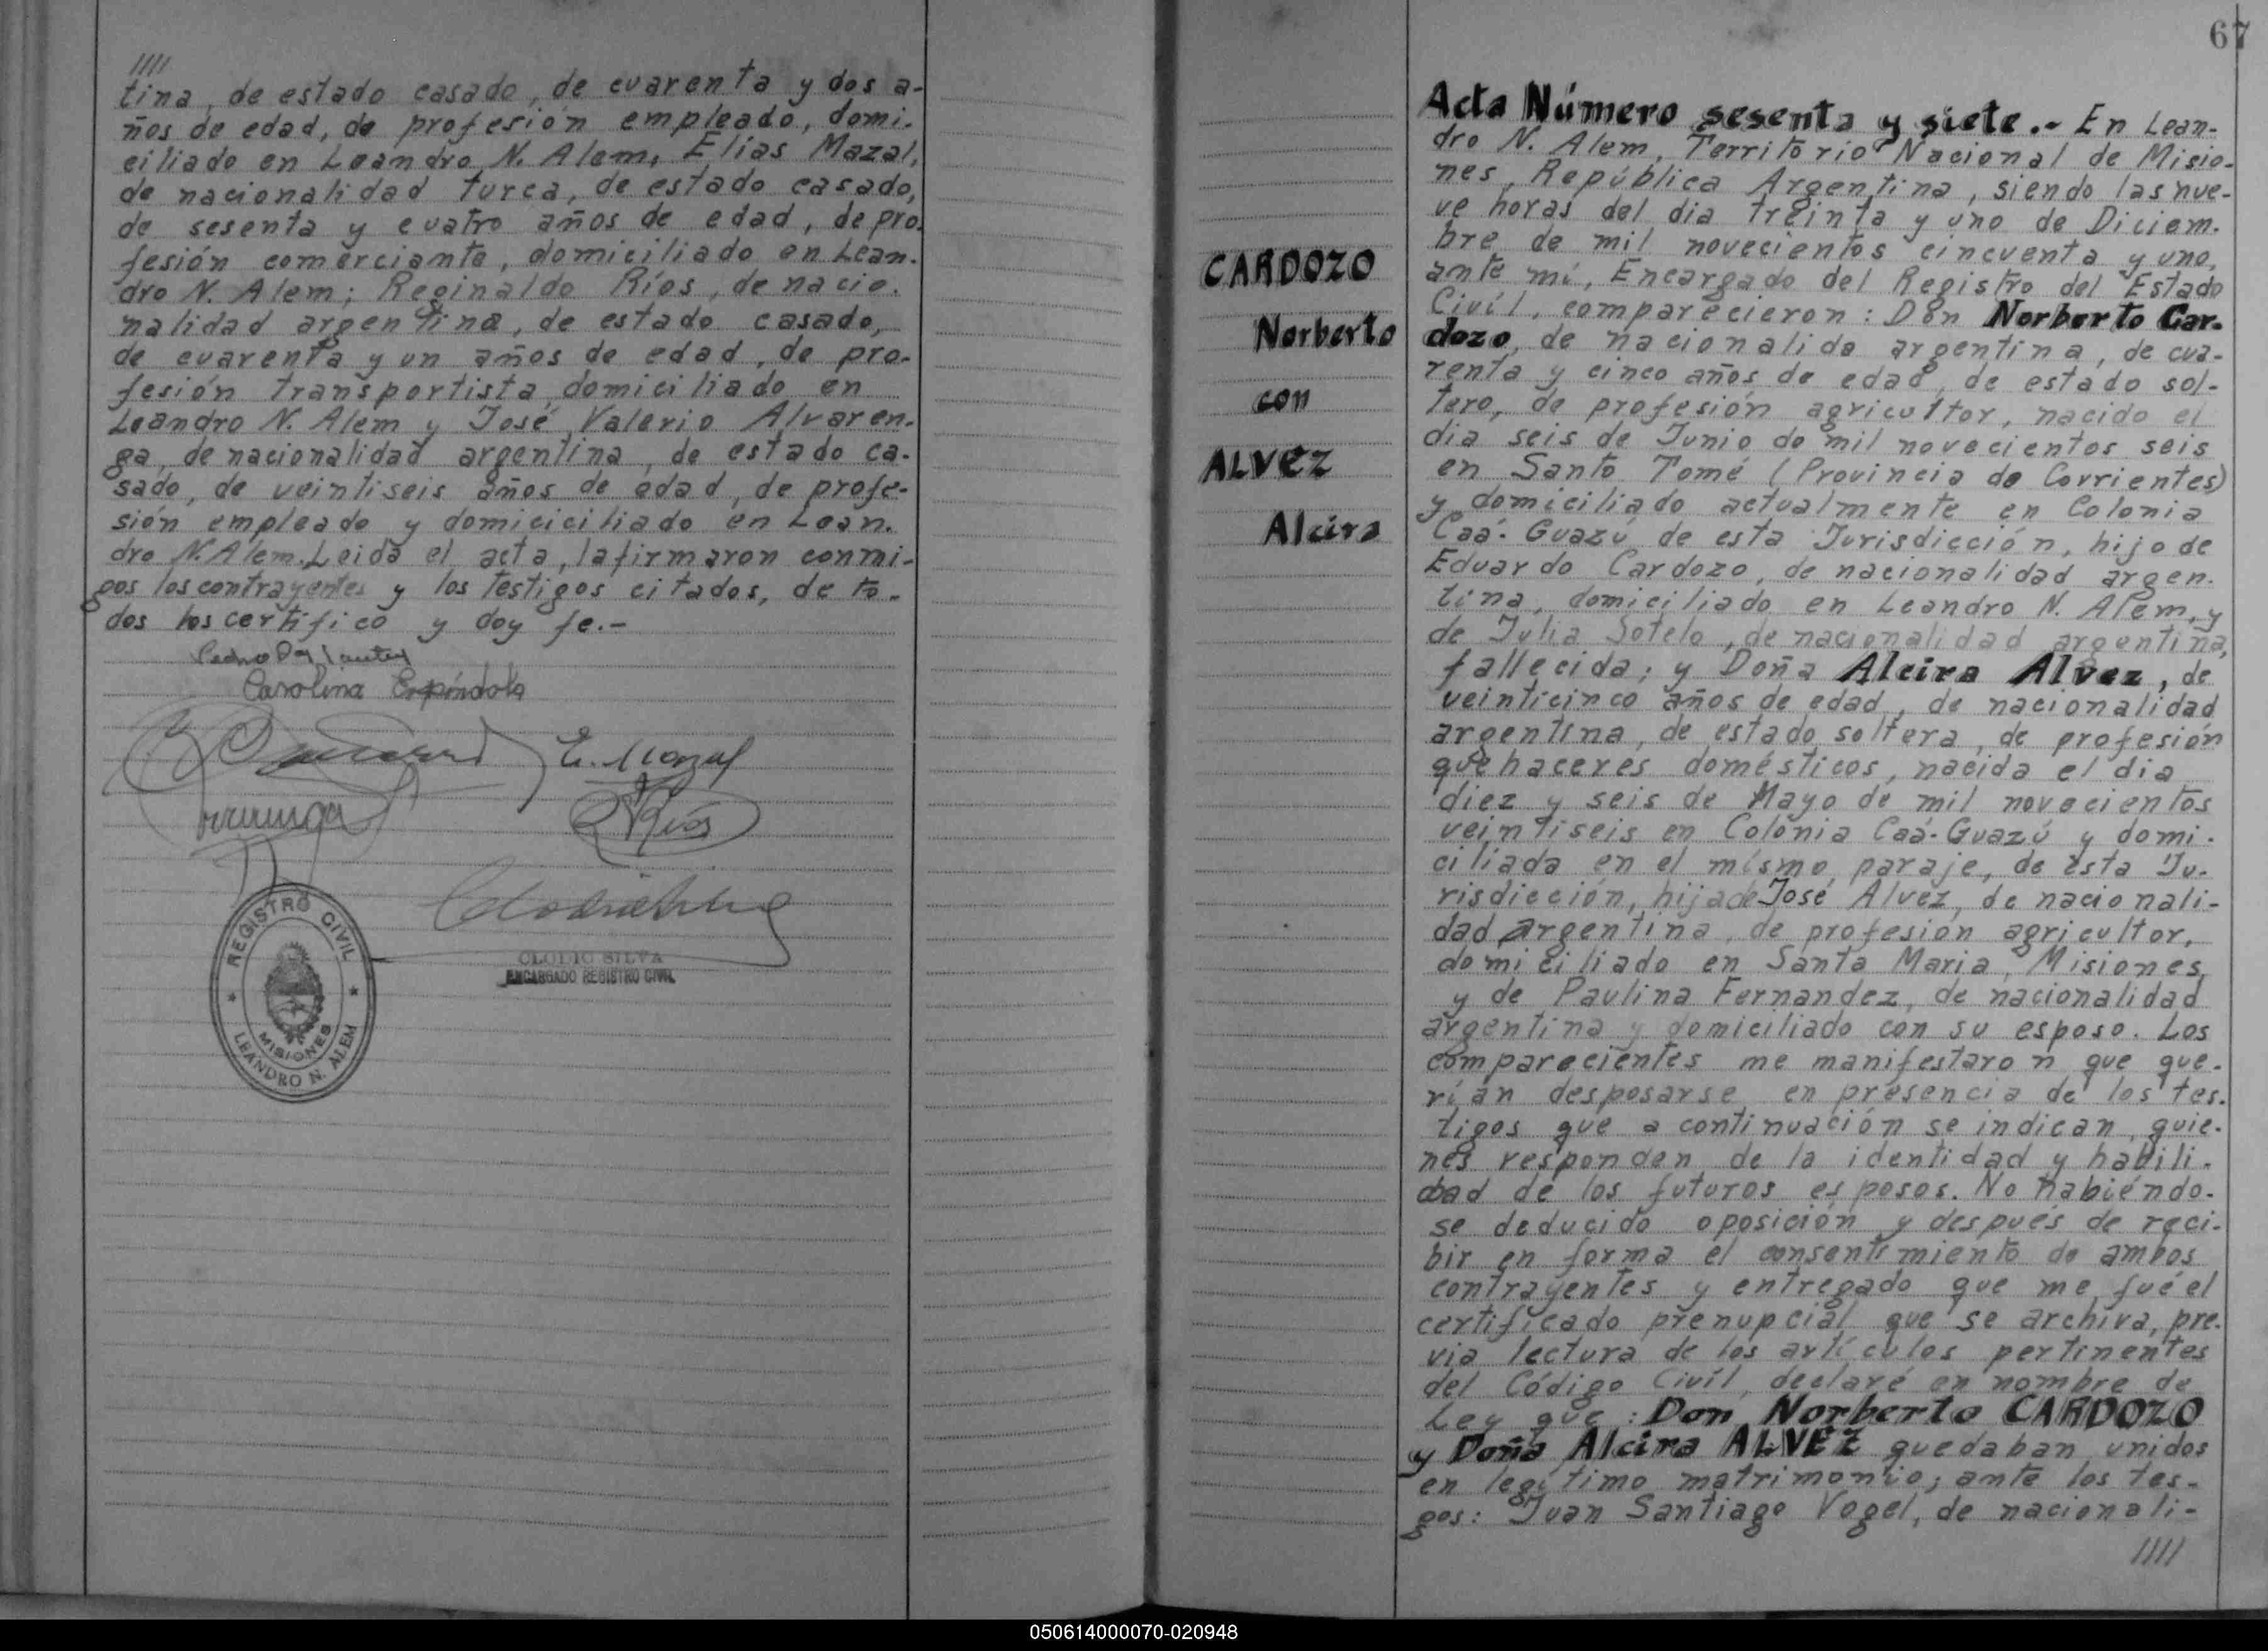 ////
tina, de estado casado, de cuarenta y dos a-
ños de edad, de profesión empleado, domi-
ciliado en Leandro N. Alem, Elías Mazal,
de nacionalidad turca, de estado casado,
de sesenta y cuatro años de edad, de pro-
fesión comerciante, domiciliado en Lean-
dro N. Alem; Reginaldo Ríos, de nacio-
nalidad argentina, de estado casado,
de cuarenta y un años de edad, de pro-
fesión transportista domiciliado en
Leandro N. Alem y José Valerio Alvaren-
ga, de nacionalidad argentina, de estado ca-
sado, de veintiseis años de edad, de profe-
sión empleado y domiciciliado en Lean-
dro N. Alem. Leida el acta, la firmaron conmi-
gos los contrayentes y los testigos citados, de to-
dos los certifico y doy fe.-
Pedro
Carolina Espíndola
E. Mazal
Ríos
REGISTRO CIVIL
MISIONES
LEANDRO N. ALEM
CLODIO SILVA
ENCARGADO REGISTRO CIVIL
67
CARDOZO
Norberto
con
ALVEZ
Alcira
Acta Número sesenta y siete.- En Lean-
dro N. Alem, Territorio Nacional de Misio-
nes, República Argentina, siendo las nue-
ve horas del dia treinta y uno de Diciem-
bre de mil novecientos cincuenta y uno,
ante mí, Encargado del Registro del Estado
Civíl, comparecieron: Don Norberto Car-
dozo, de nacionalida argentina, de cua-
renta y cinco años de edad, de estado sol-
tero, de profesión agricultor, nacido el
dia seis de Junio de mil novecientos seis
en Santo Tomé (Provincia de Corrientes)
y domiciliado actualmente en Colonia
Caá-Guazú de esta Jurisdicción, hijo de
Eduardo Cardozo, de nacionalidad argen-
tina, domiciliado en Leandro N. Alem, y
de Julia Sotelo, de nacionalidad argentina,
fallecida; y Doña Alcira Alvez, de
veinticinco años de edad, de nacionalidad
argentina, de estado soltera, de profesión
quehaceres domésticos, nacida el dia
diez y seis de Mayo de mil novecientos
veintiseis en Colonia Caá-Guazú y domi-
ciliada en el mismo paraje, de esta Ju-
risdicción, hija de José Alvez, de nacionali-
dad argentina, de profesión agricultor,
domiciliado en Santa Maria, Misiones,
y de Paulina Fernandez, de nacionalidad
argentina y domiciliado con su esposo. Los
comparecientes me manifestaron que que-
rían desposarse en presencia de los tes-
tigos que a continuación se indican, quie-
nes responden de la identidad y habili-
dad de los futuros esposos. No habiéndo-
se deducido oposición y después de reci-
bir en forma el consentimiento de ambos
contrayentes y entregado que me fué el
certificado prenupcial que se archiva, pre-
via lectura de los artículos pertinentes
del Código Civíl, declaré en nombre de
Ley que: Don Norberto CARDOZO
y Doña Alcira ALVEZ quedaban unidos
en legítimo matrimonio; ante los tes-
gos: Juan Santiago Vogel, de nacionali-
////
050614000070-020948